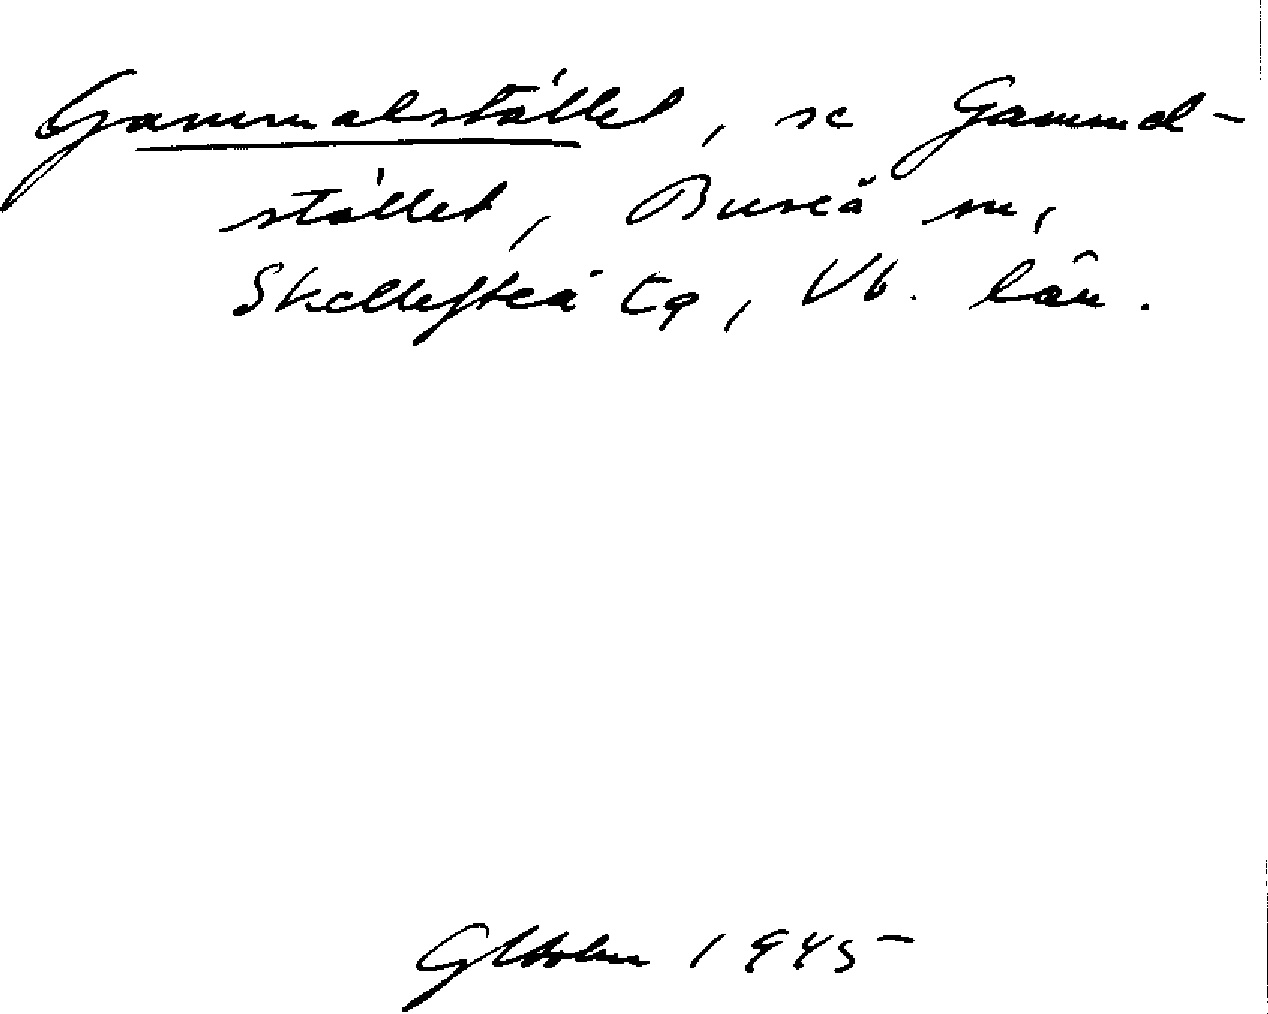 Gammalstället, se Gammel-
stället, Bureå sn,
Skellefteå tg, Vb. län.
GHolm 1945